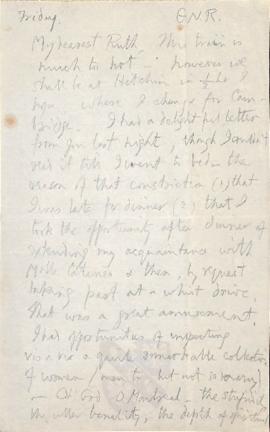 Friday. G.N.R.
My dearest Ruth. This train is
much too hot — however we
shall be at Hitchin in ½ hr I
hope where I change for Cam-
bridge. I had a delightful letter
from you last night, though I couldn't
read it till I went to bed — the
reason of that constriction (1) that
I was late for dinner (2) that I
took the opportunity after dinner of
extending my acquaintance with
& then, by request
taking part at a whist drive.
That was a great amusement.
I had opportunities of inspecting
vis a vis a quite remarkable collection
of women (men too but not so many)
— O God O Montreal — the
the utter banality, the depth of